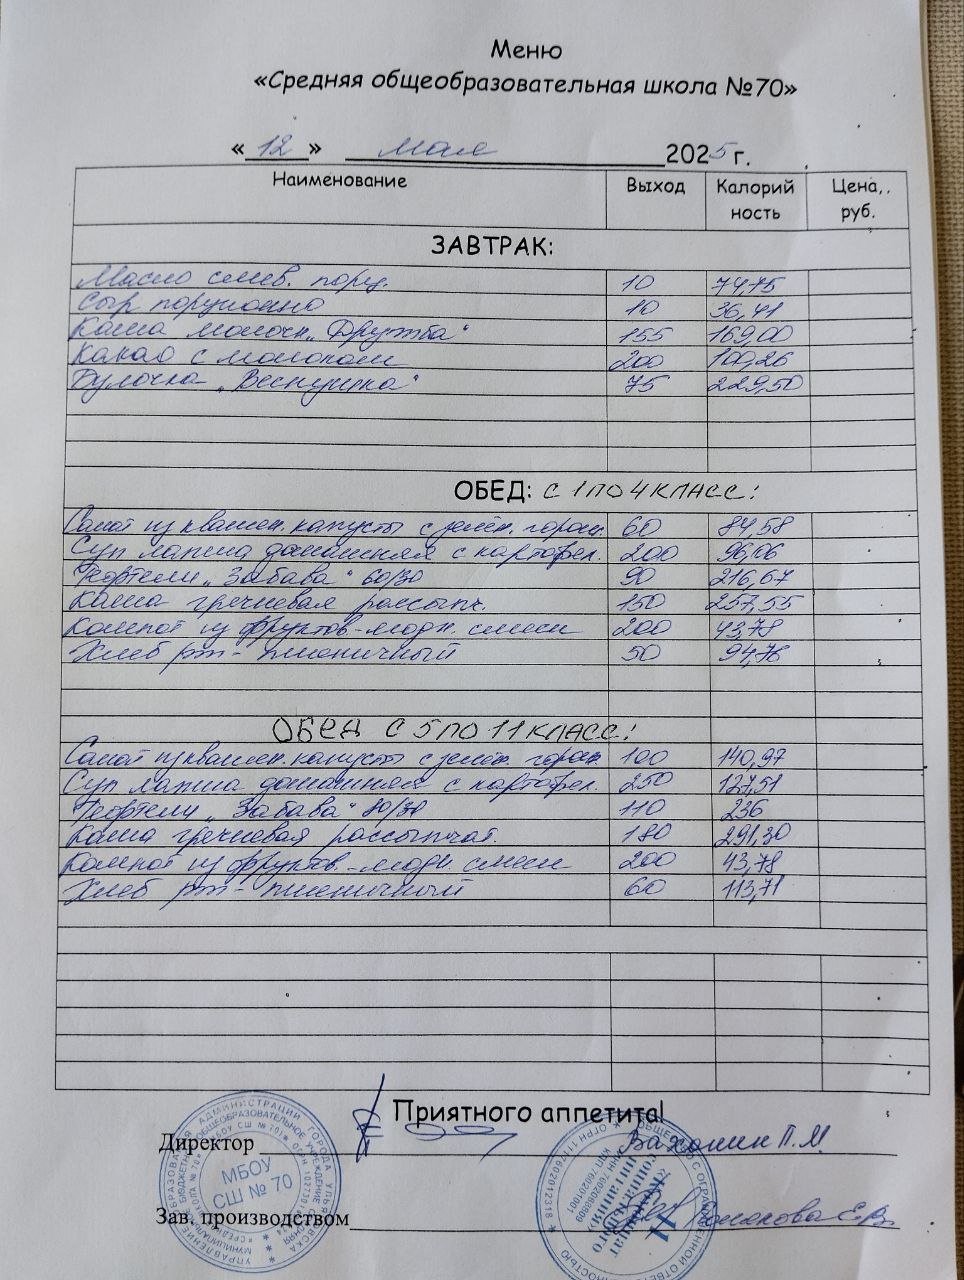 Меню
«Средняя общеобразовательная школа №70»
«12» мая 2025 г.
Наименование Выход Калорийность Цена, руб.
ЗАВТРАК:
Масло слив. порц. 10 74,75
Сыр порционно 10 36,41
Каша молочн. „Дружба" 155 169,00
Какао с молоком 200 100,26
Булочка „Веснушка" 75 229,50
ОБЕД: С 1 ПО 4 КЛАСС:
Салат из квашен. капусты с зелён. горош. 60 84,58
Суп лапша домашняя с картофел. 200 96,06
Тефтели „Забава" 60/30 90 216,67
Каша гречневая рассыпч. 150 257,55
Компот из фруктов.-ягодн. смеси 200 43,78
Хлеб рж- пшеничный 50 94,76
ОБЕД С 5 ПО 11 КЛАСС:
Салат из квашен. капусты с зелён. горош 100 140,97
Суп лапша домашняя с картофел. 250 127,51
Тефтели „Забава" 80/30 110 236
Каша гречневая рассыпчат. 180 291,30
Компот из фруктов.-ягодн. смеси 200 43,78
Хлеб рж- пшеничный 60 113,71
Приятного аппетита!
Директор
МБОУ
СШ № 70
Зав. производством